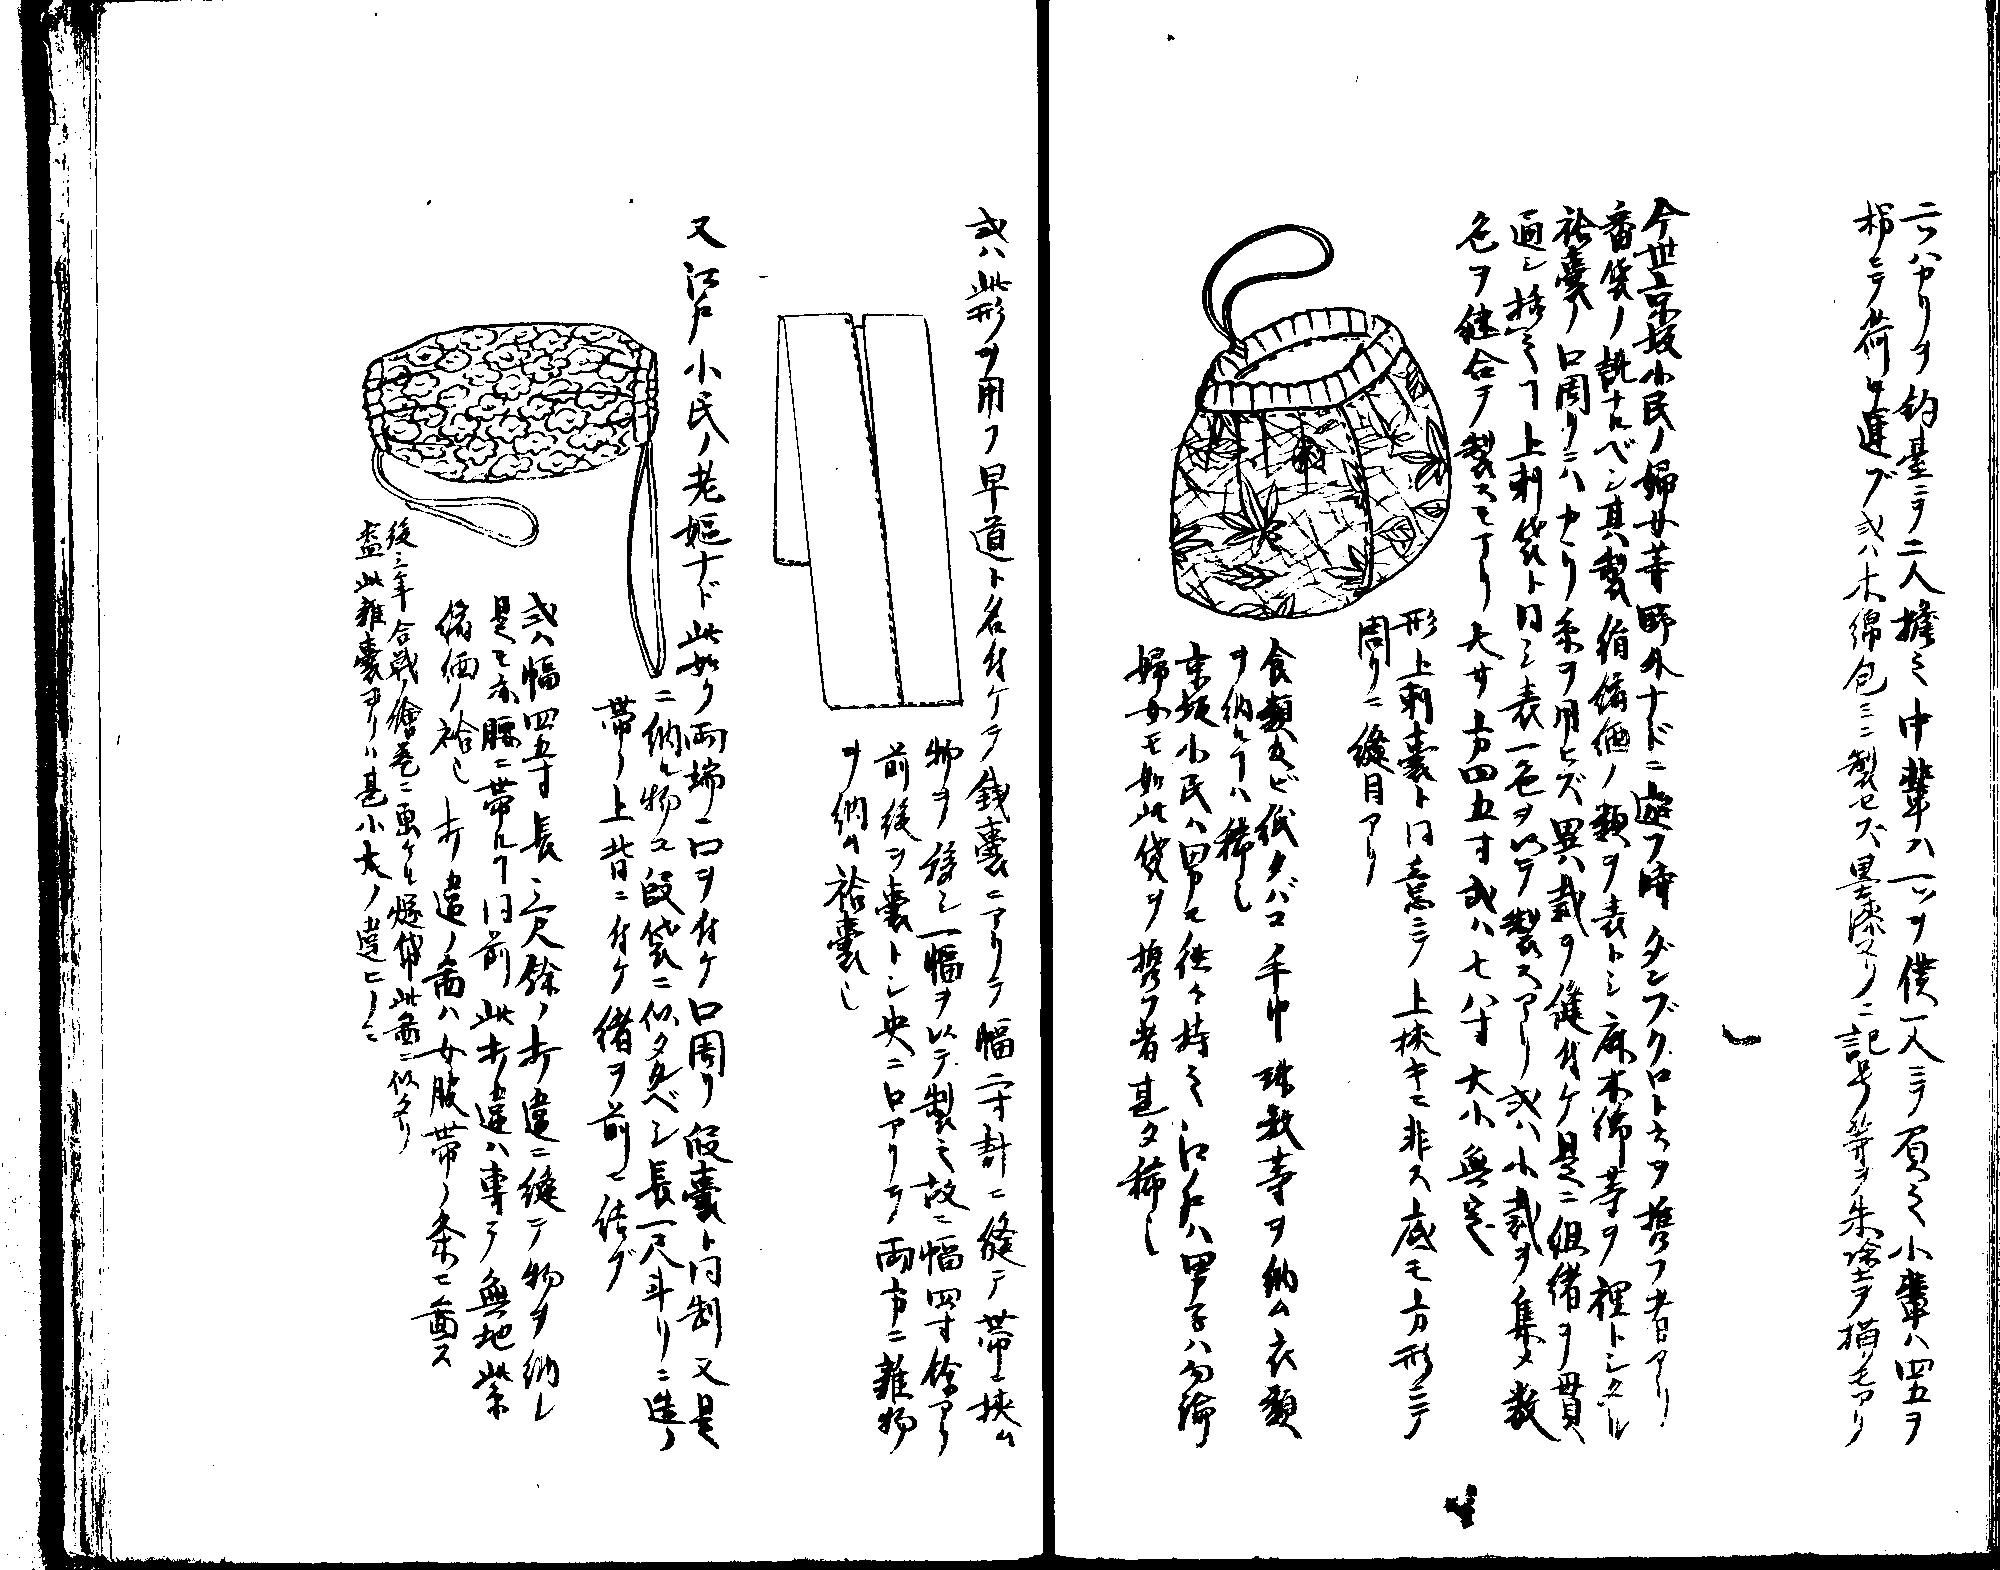 二ツバカリヲ釣臺ニテ二人擔ミ中輩ハ一ツヲ僕一人ニテ負ミ小輩ハ四五ヲ
梱ニテ荷ヒ運ブ或ハ木綿包ミニ製セズ墨漆ヌリニ記号等ヲ朱塗ヲ描クモアリ
今世京坂小民ノ婦女等野外ナドニ遊フ時ダンブクロト云ヲ携フ者アリ
番袋ノ訛ナルベシ其製絹縮緬ノ類ヲ表トシ麻木綿等ヲ裡トシタル
袷嚢ノ口周リニハカリ糸ヲ用ヒズ異ハ裁ヲ縫付ケ是ニ組緒ヲ貫
通シ括ミテ上刺袋ト同シ表一色ヲ以テ製スアリ或ハ小裁ヲ集メ数
色ヲ継合テ製スモアリ大サ方四五寸或ハ七八寸大小無定
形上刺嚢ト同意ニテ上狭キニ非ス底モ方形ニテ
周リニ縫目アリ
食類及ビ紙タバコ手巾珠数等ヲ納ム衣類
ヲ納ルヿハ稀シ
京坂小民ハ男モ往々持ミ江戸ハ男子ハ勿論
婦女モ如此袋ヲ携フ者甚タ稀シ
或ハ此形ヲ用フ早道ト名付ケテ錢嚢ニアリテ幅二寸計ニ縫テ帯ニ挾ム
物ヲ縫シ一幅ヲ以テ製ミ故ニ幅四寸餘アリ
前後ヲ嚢トシ央ニ口アリテ両方ニ雜物
ヲ納ム袷嚢シ
又江戸小民ノ老嫗ナド此如ク両端ニ口ヲ付ケ口周リ段嚢ト同制又是
ニ納ル物モ段袋ニ似タルベシ長一尺斗リニ造リ
帯ノ上背ニ付ケ緒ヲ前ニ結ブ
或ハ幅四五寸長三尺餘ノ布違ニ縫テ物ヲ納レ
是モ亦腰ニ帯ルヿ同前此布違ハ専ラ無地紫
縮緬ノ袷シ布違ノ啚ハ女服帯ノ条ニ啚ス
後三年合戦ノ繪巻ニ画ケル燧袋此啚ニ似タリ
盖此雜嚢ヨリハ甚小大ノ違ヒノミ